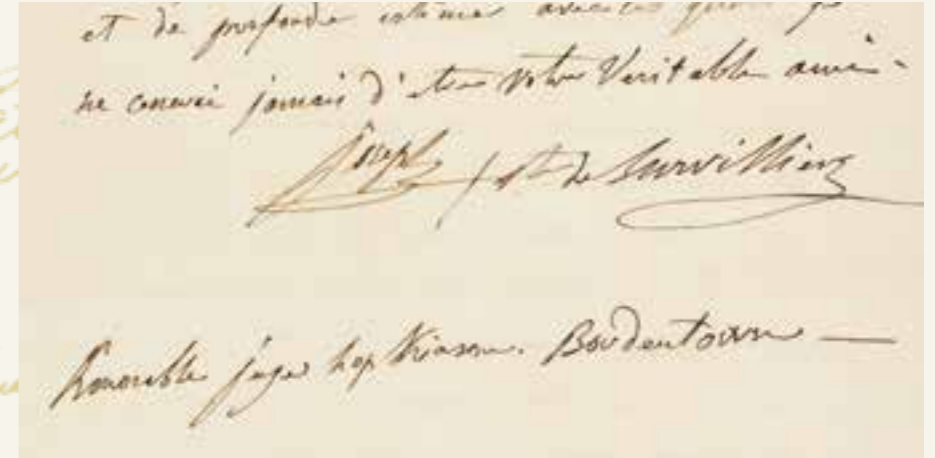 et de profonde estime avec les
ne cesserai jamais d'etre Votre Veritable ami -
Joseph / Cte de Survilliers
honorable juge hopkinson. Bordentown —